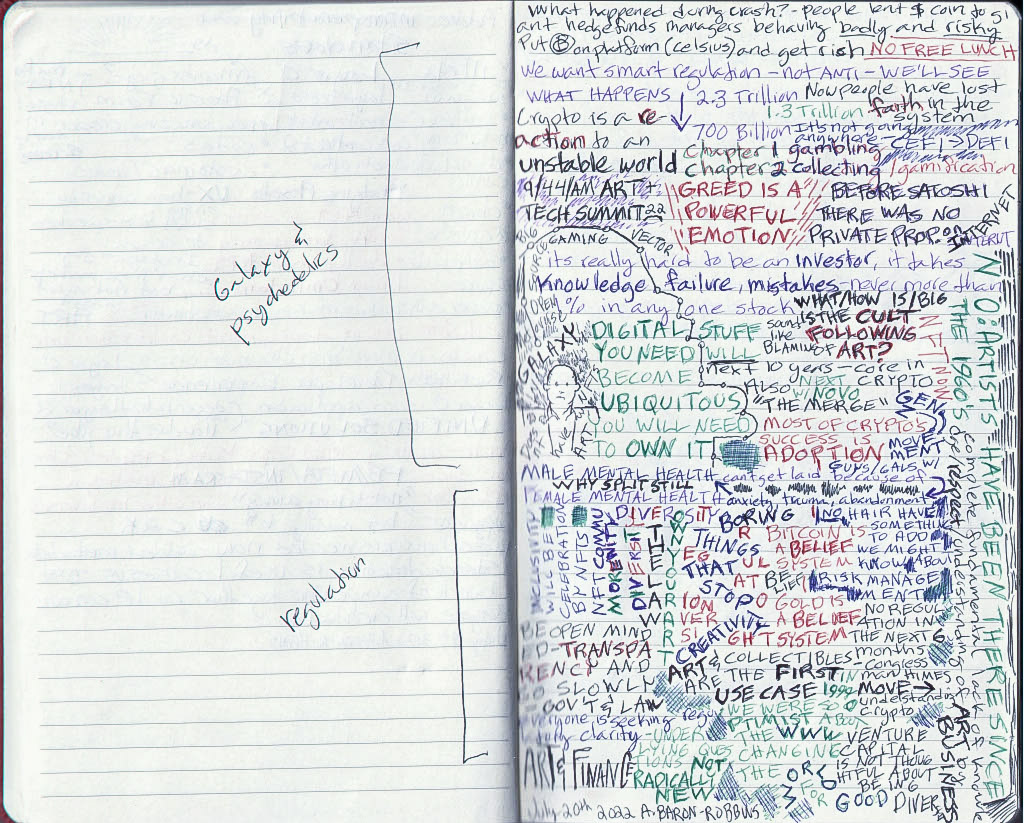 Galaxy &
psychedelics
regulation
What happened during crash? - people lent $ coin to 51
ant hedgefunds managers behaving badly and risky
Put ₿ on platform (celsius) and get rish NO FREE LUNCH
We want smart regulation - not ANTI - WE'LL SEE
WHAT HAPPENS ↓ 2.3 Trillion Now people have lost
1.3 Trillion faith in the
system
Crypto is a re-
action to an
unstable world
700 Billion It's not going
anywhere -
CEFI → DEFI
Chapter 1 gambling
Chapter 2 collecting / gamification
9/44/AM ART +
TECH SUMMIT 22
GREED IS A
POWERFUL
EMOTION
BEFORE SATOSHI
THERE WAS NO
PRIVATE PROP. on
INTERNET
GAMING
VECTOR
its really hard to be an investor, it takes
knowledge, failure, mistakes - never more than
% in any one stock
WHAT/HOW IS/BIG
IS THE CULT
FOLLOWING
ART?
sounds
like
BLAMING OF
NFT NOW
GALAXY
DIGITAL STUFF
YOU NEED WILL
BECOME
UBIQUITOUS
YOU WILL NEED
TO OWN IT
next 10 years - core in
NEXT CRYPTO
ALSO W/ NOVO
"THE MERGE"
GEN
MOST OF CRYPTO'S
SUCCESS IS
ADOPTION
MOVE
MENT
MALE MENTAL HEALTH can't get laid because of
GUYS/GALS W/
WHY SPLIT STILL
FEMALE MENTAL HEALTH anxiety, trauma, abandonment
INCLUSIVITY
WILL BE
CELEBRATION
BY NFTS
NFT COMMU
MORE NITY
DIVERSITY
DIVERSIT
OWN YOUR ART
BORING
THINGS
THAT
STOP
CREATIVITY
I NO HAIR HAVE
SOMETHING
TO ADD
WE MIGHT
KNOW ABOUT
BITCOIN IS
A BELIEF
SYSTEM
RISK MANAGE
MENT
GOLD IS
A BELIEF
SYSTEM
NO REGUL
ATION IN
THE NEXT 6
months
- congress
man HIMES
BE OPEN MIND
ED - TRANSPA
RENCY AND
GO SLOWLY
GOV'T & LAW
ART & COLLECTIBLES
ARE THE FIRST IN
USE CASE 1999 MOVE →
understanding
crypto
everyone is seeking regu
latory clarity - UNDER
LYING QUES
TIONS NOT
RADICALLY
NEW
WE WERE SO O
PTIMIST ABOUT
THE WWW
CHANGING
THE WORLD
FOR
VENTURE
CAPITAL
IS NOT THOU
HTFUL ABOUT
BEING
GOOD DIVERS
ART & FINANCE
NO: ARTISTS HAVE BEEN THERE SINCE
THE 1960'S
complete fundamental lack of know
respect/understanding of ART by
BUSINESS
July 20th 2022 A. BARON-ROBBINS